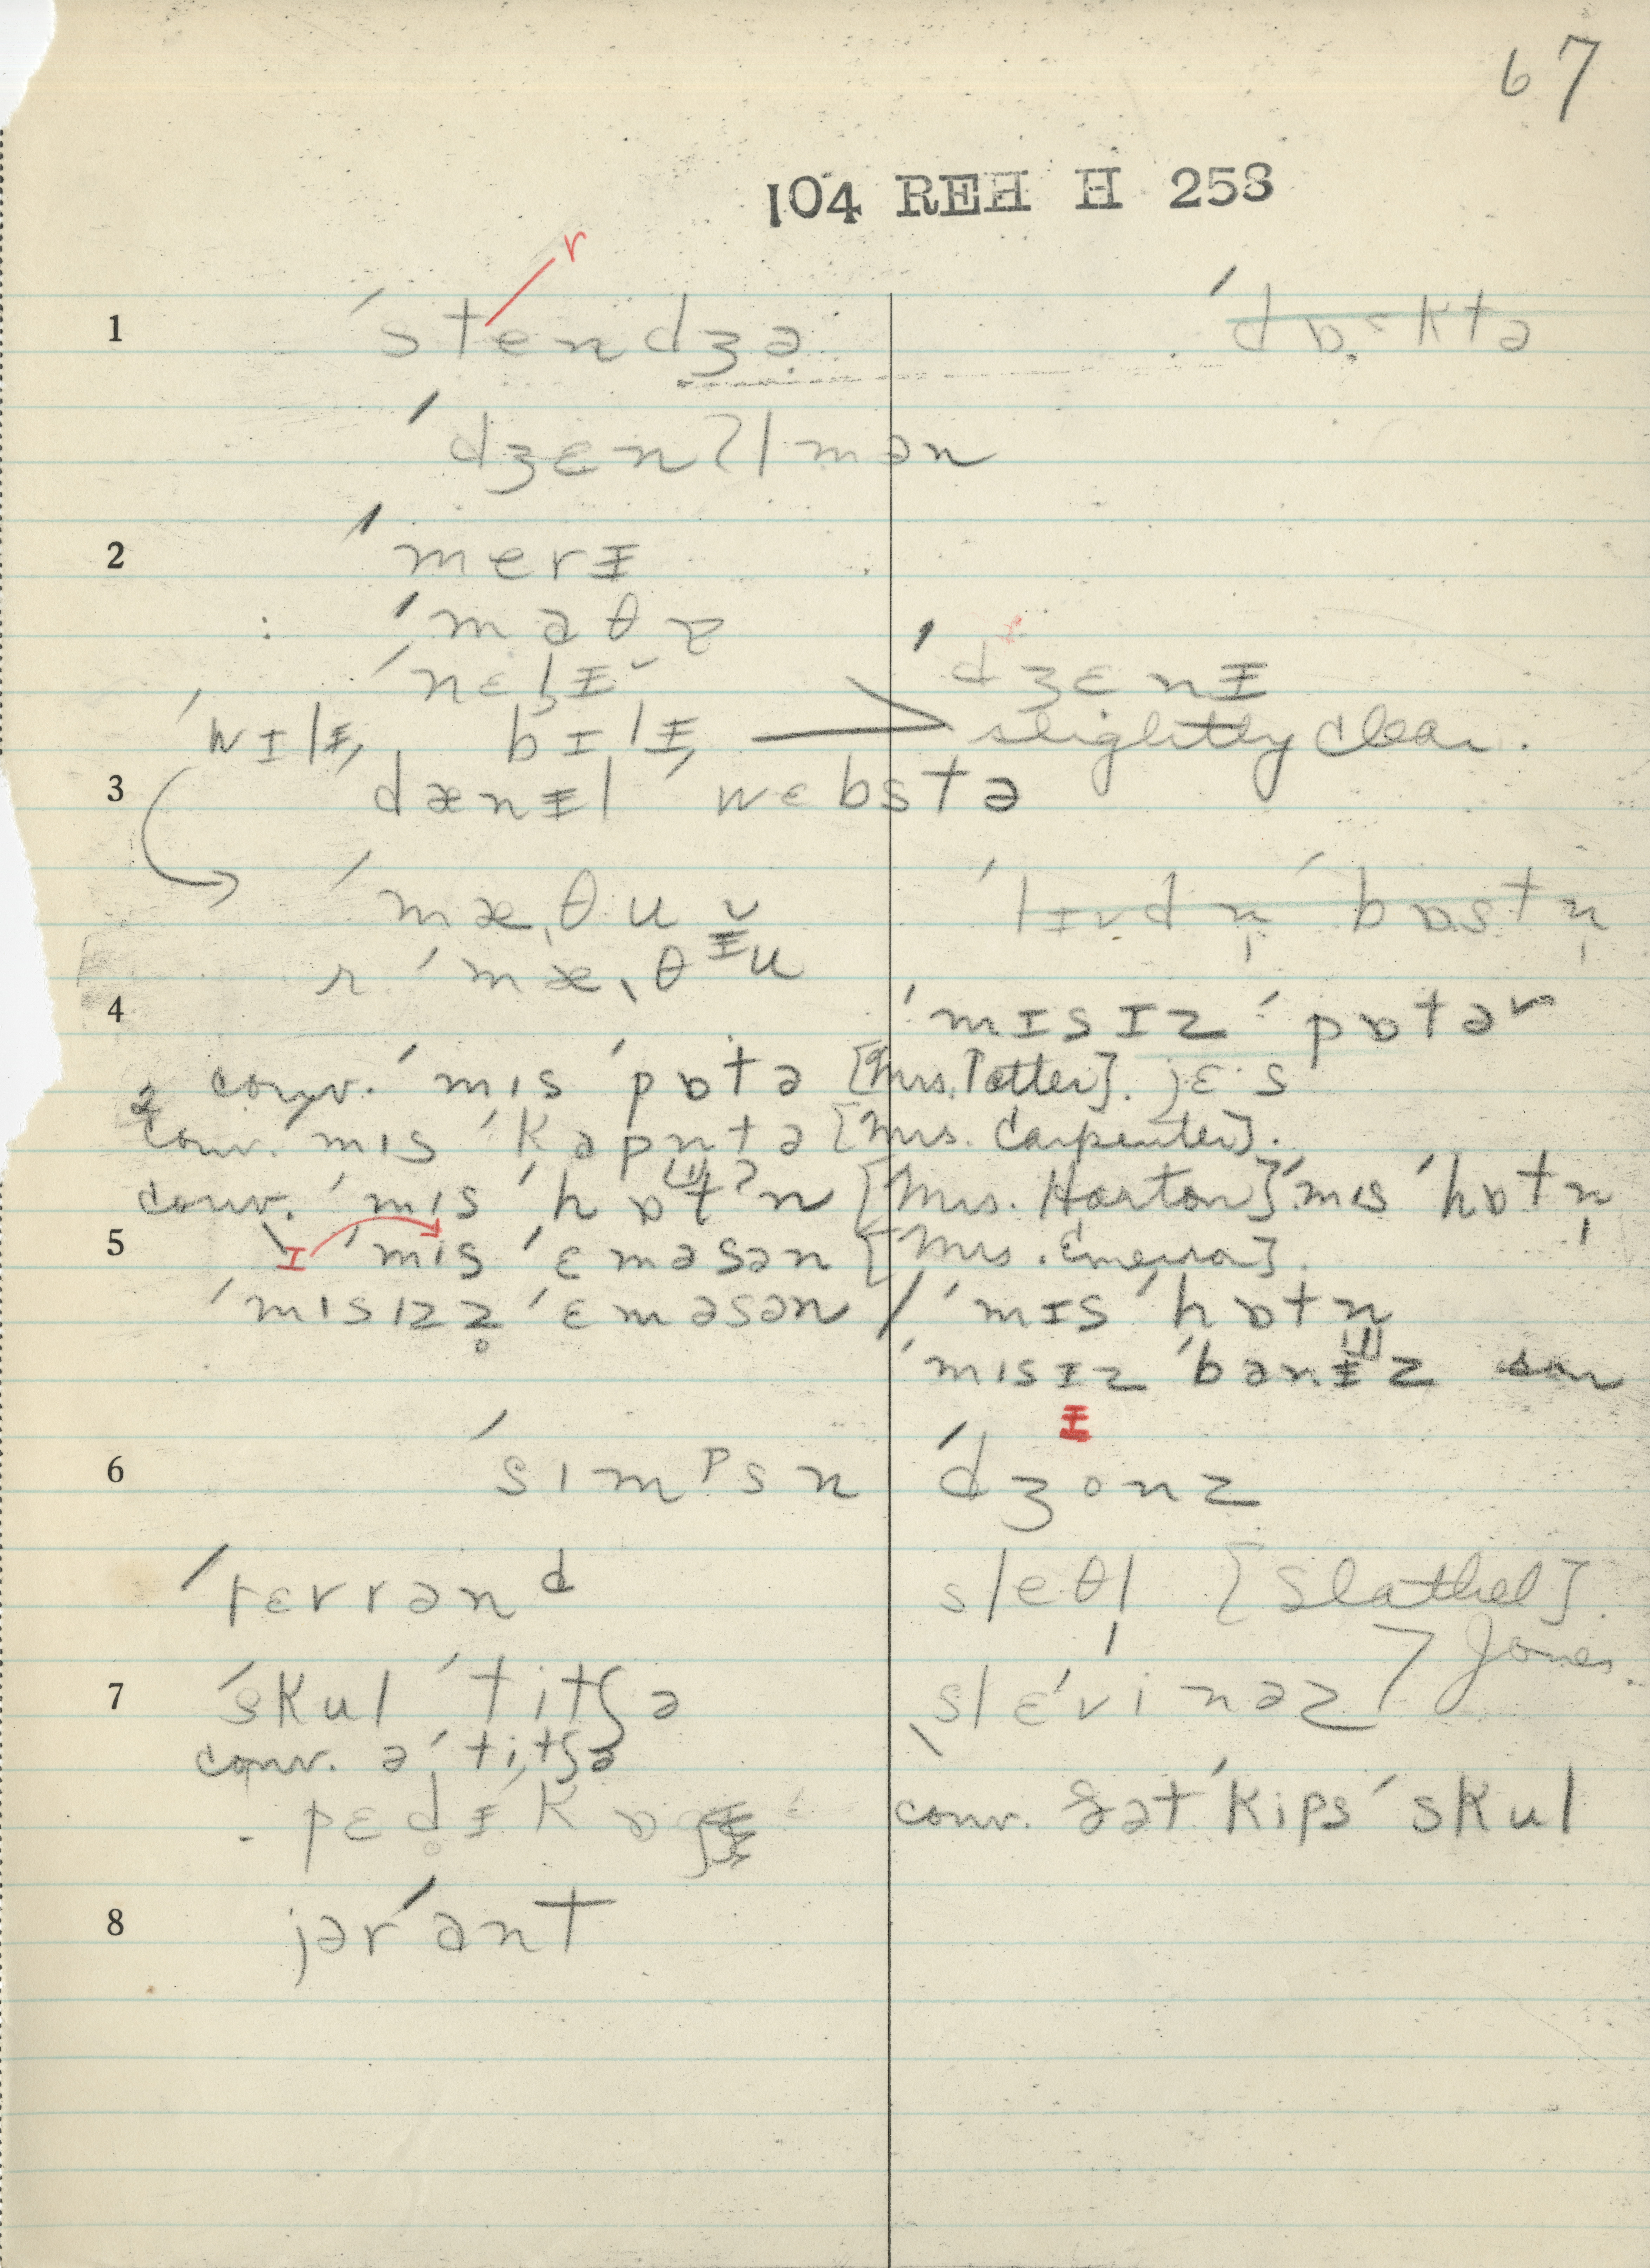 67
104 REH H 258
r
1 ˈstendʒə ˈdɒ·ktə
ˈdʒɛnʔlmən
2 ˈmerɨ
: ˈmaθɚ
ˈnɛlɨ˘ ˈdʒɛnɨ
ˈwɪlɨ, bɪlɨ, slightly clear.
3 dænɨl ˈwɛbstə
ˈmæθu ˈlɪndn̩ ˈbɒstn̩
r ˈmæθᶤu
4 ˈmɪsɪz ˈpɒtəʳ
conv. ˈmɪs ˈpɒtə [Mrs. Potter]. jɛ·s
conv. mɪs ˈkapntə [Mrs. Carpenter].
conv. ˈmɪs ˈhɒtʔn [Mrs. Horton] ˈmɪs ˈhɒtn̩
5 ɪ ˈmɪs ˈɛməsən [Mrs. Emerson].
ˈmɪsɪzz̥ ˈɛməsən / ˈmɪs ˈhɒtn
ˈmɪsɪz ˈbənɨz son
ɨ
6 ˈsɪmᵖsn ˈdʒonz
ˈrɛvrənᵈ sleθl [Slathel].
7 ˈskul ˈtitʃə slɛˈvinəz Jones.
conv. ə ˈtitʃə
conv. ʃət ˈkips ˈskul
8 jərˈant